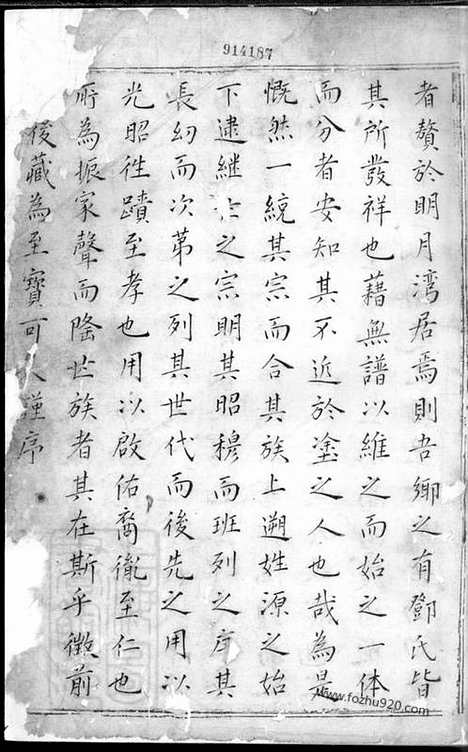 914187
者贅於明月湾居焉則吾鄉之有鄧氏皆
其所發祥也藉無譜以維之而始之一体
而分者安知其不近於塗之人也哉為是
慨然一統其宗而合其族上遡姓源之始
下逮継之宗明其昭穆而班列之序其
長幼而次第之列其世代而後先之用以
光昭徃蹟至孝也用以啟佑裔胤至仁也
所為振家聲而隆世族者其在斯乎徵前
後藏為至寳可人謹序
www.fozhu920.com